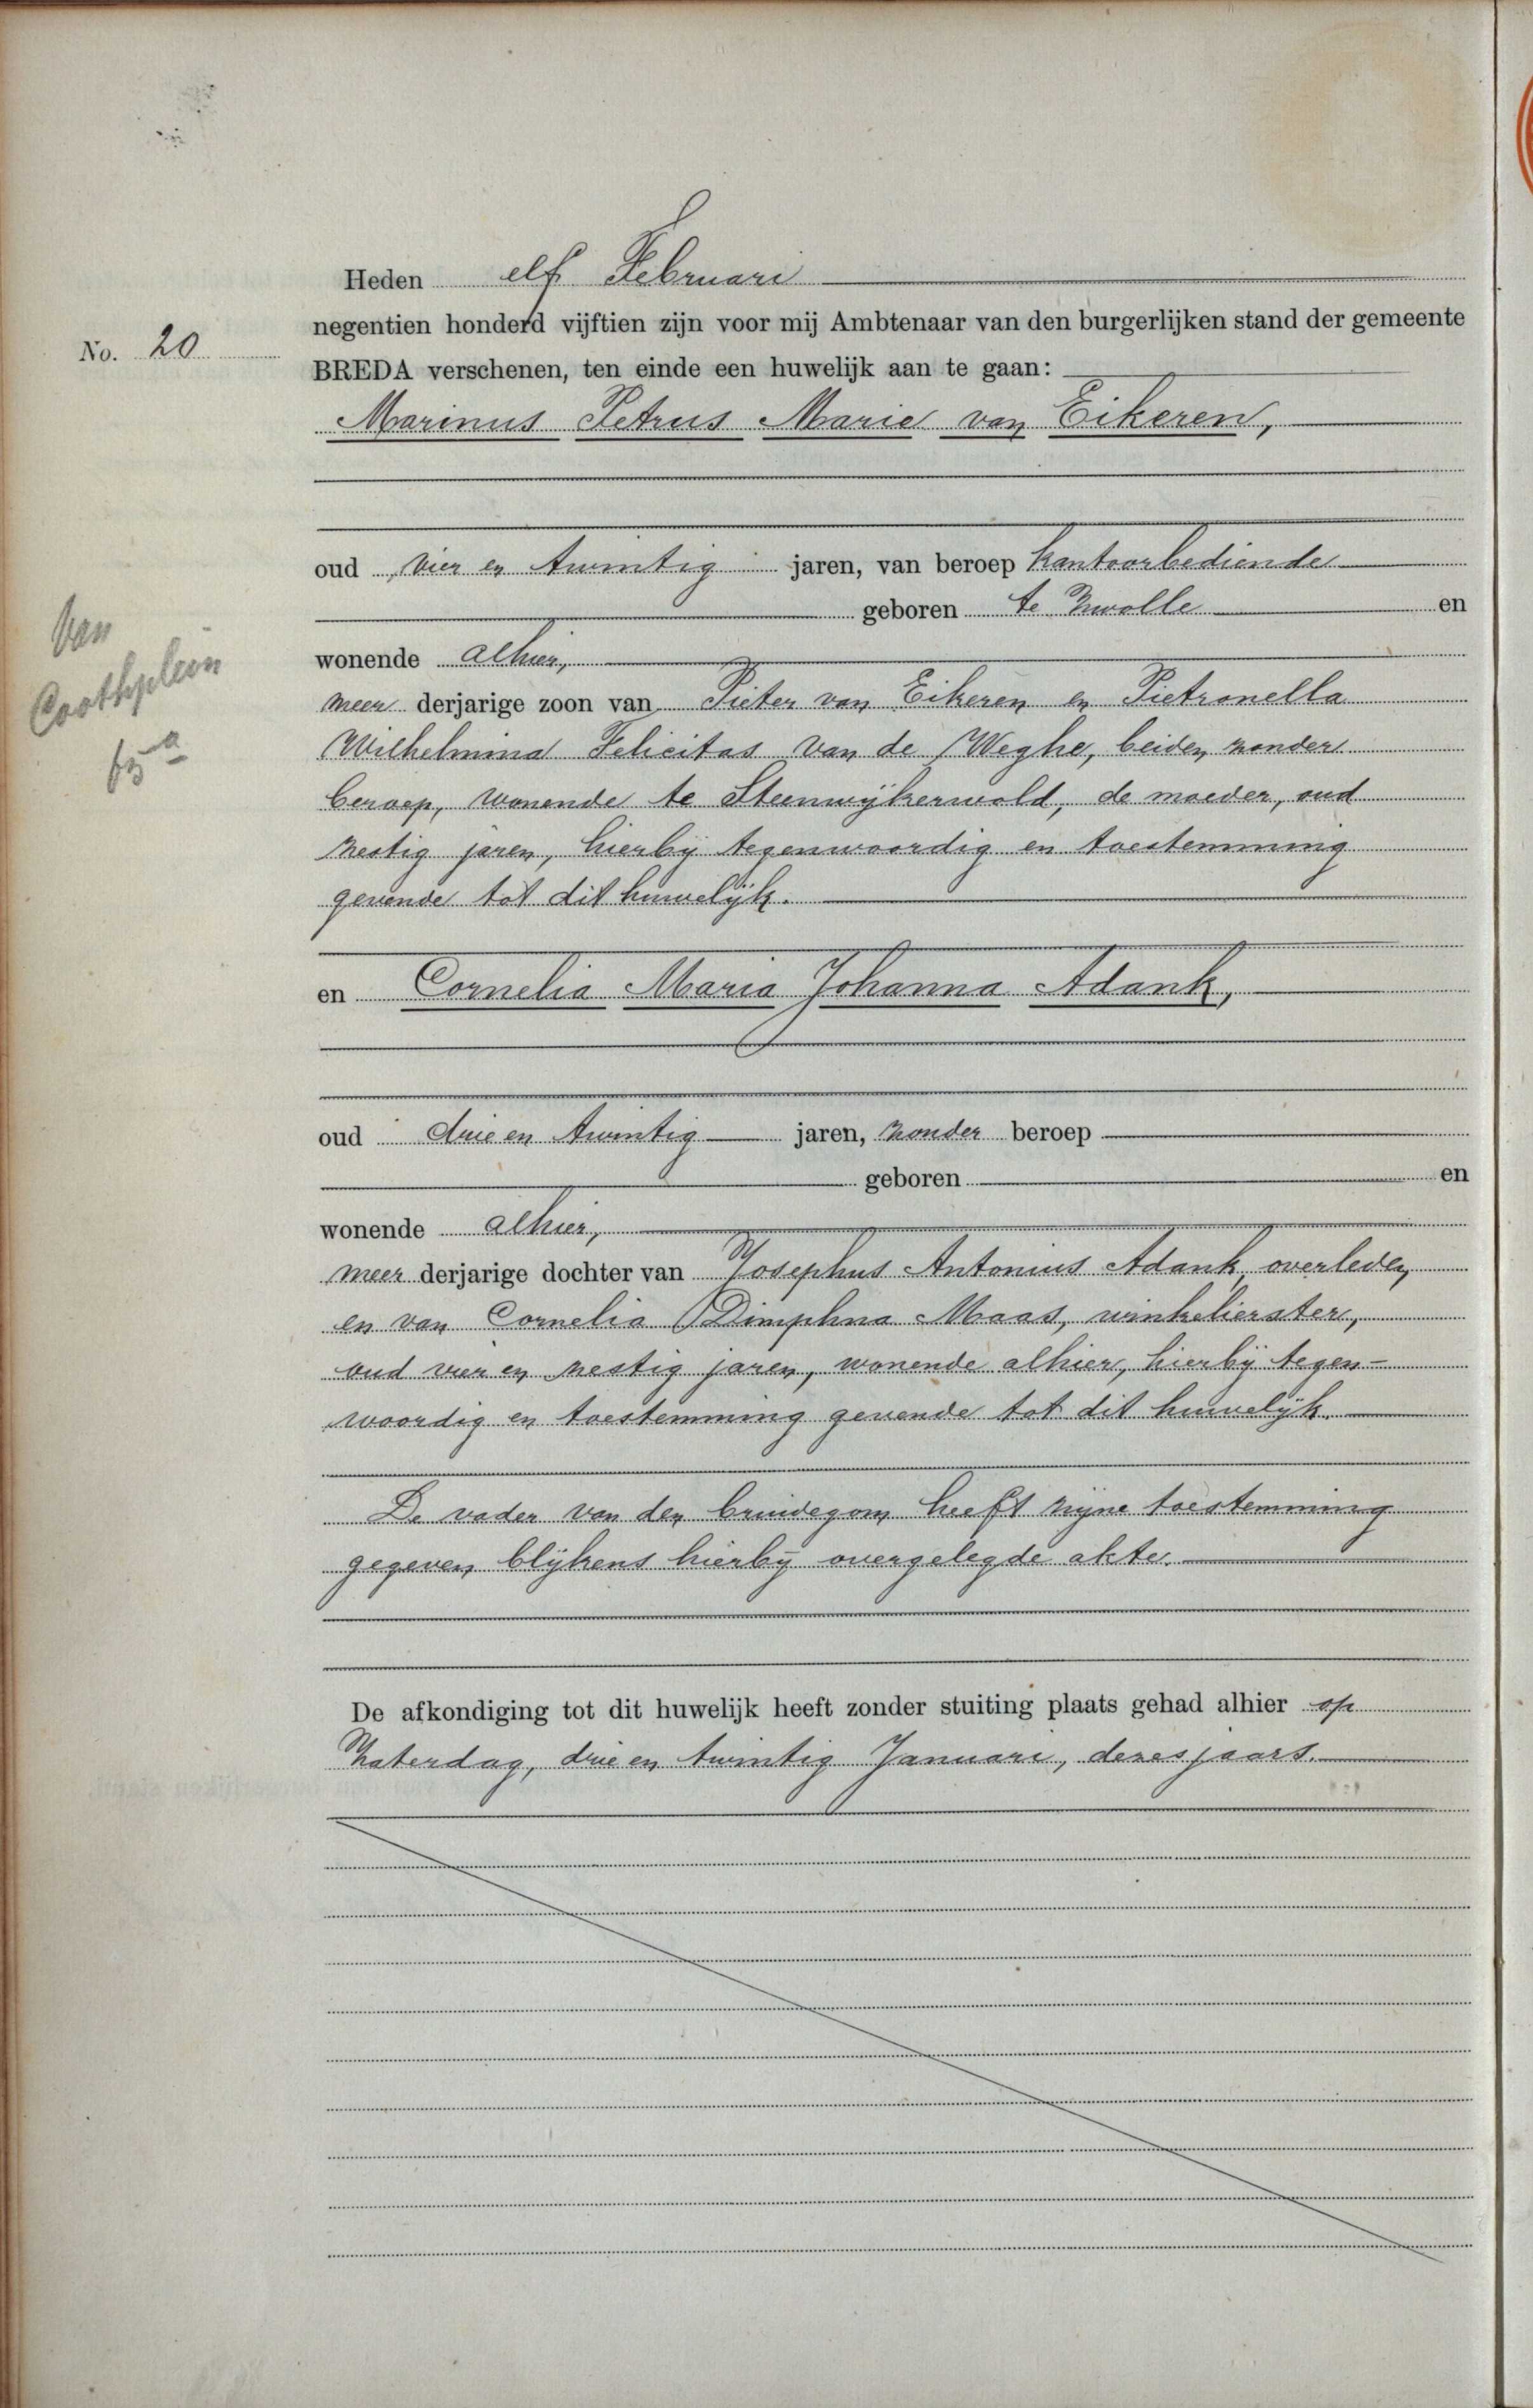 Heden elf Februari
negentien honderd vijftien zijn voor mij Ambtenaar van den burgerlijken stand der gemeente
No. 20
BREDA verschenen, ten einde een huwelijk aan te gaan:
Marinus Petrus Marie van Eikeren,
oud vier en twintig jaren, van beroep kantoorbediende
geboren te Zwolle en
Van
Coothplein
wonende alhier,
meer derjarige zoon van Pieter van Eikeren en Pietronella
Wilhelmina Felicitas van de Weghe, beiden zonder
beroep, wonende te Steenwijkerwold, de moeder, oud
zestig jaren, hierbij tegenwoordig en toestemming
gevende tot dit huwelijk.
en Cornelia Maria Johanna Adank,
oud drie en twintig jaren, zonder beroep
geboren en
wonende alhier,
meer derjarige dochter van Josephus Antonius Adank, overleden,
en van Cornelia Dimphna Maas, winkelierster,
oud vier en zestig jaren, wonende alhier, hierbij tegen-
woordig en toestemming gevende tot dit huwelijk.
De vader van den bruidegom heeft zijne toestemming
gegeven blijkens hierbij overgelegde akte.
De afkondiging tot dit huwelijk heeft zonder stuiting plaats gehad alhier op
Zaterdag, drie en twintig Januari, dezes jaars.